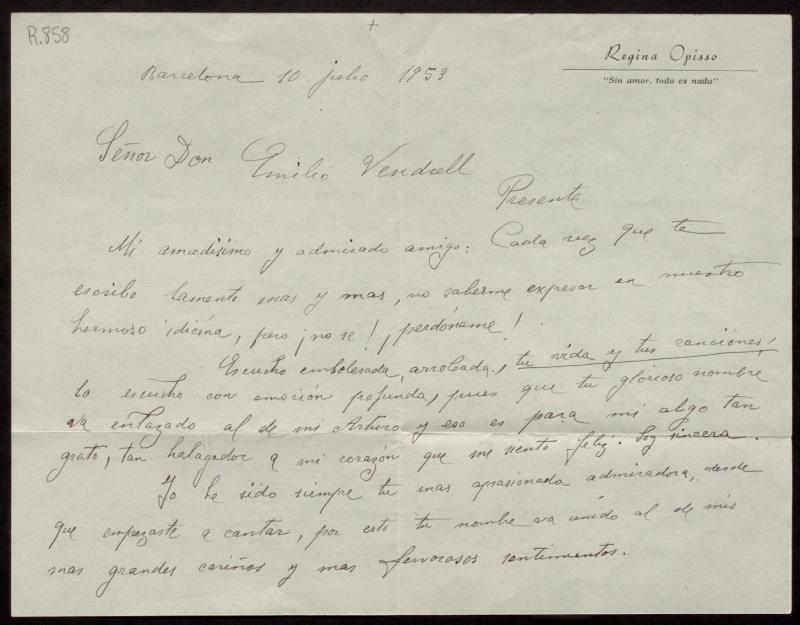 R.858
+
Regina Opisso
"Sin amor, todo es nada"
Barcelona 10 julio 1953
Señor Don Emilio Vendrell
Presente
Mi amadisimo y admirado amigo: Cada vez que te
escribo lamento mas y mas, no saberme expresar en nuestro
hermoso idioma, pero ¡no sé!, ¡perdóname!
Escucho embelesada, arrobada, tu vida y tus canciones,
lo escucho con emoción profunda, pues que tu glorioso nombre
va enlazado al de mi Arturo y eso es para mi algo tan
grato, tan halagador a mi corazón que me siento feliz. Soy sincera.
Yo he sido siempre tu mas apasionada admiradora, desde
que empezaste a cantar, por esto tu nombre va unido al de mis
mas grandes cariños y mas fervorosos sentimientos.